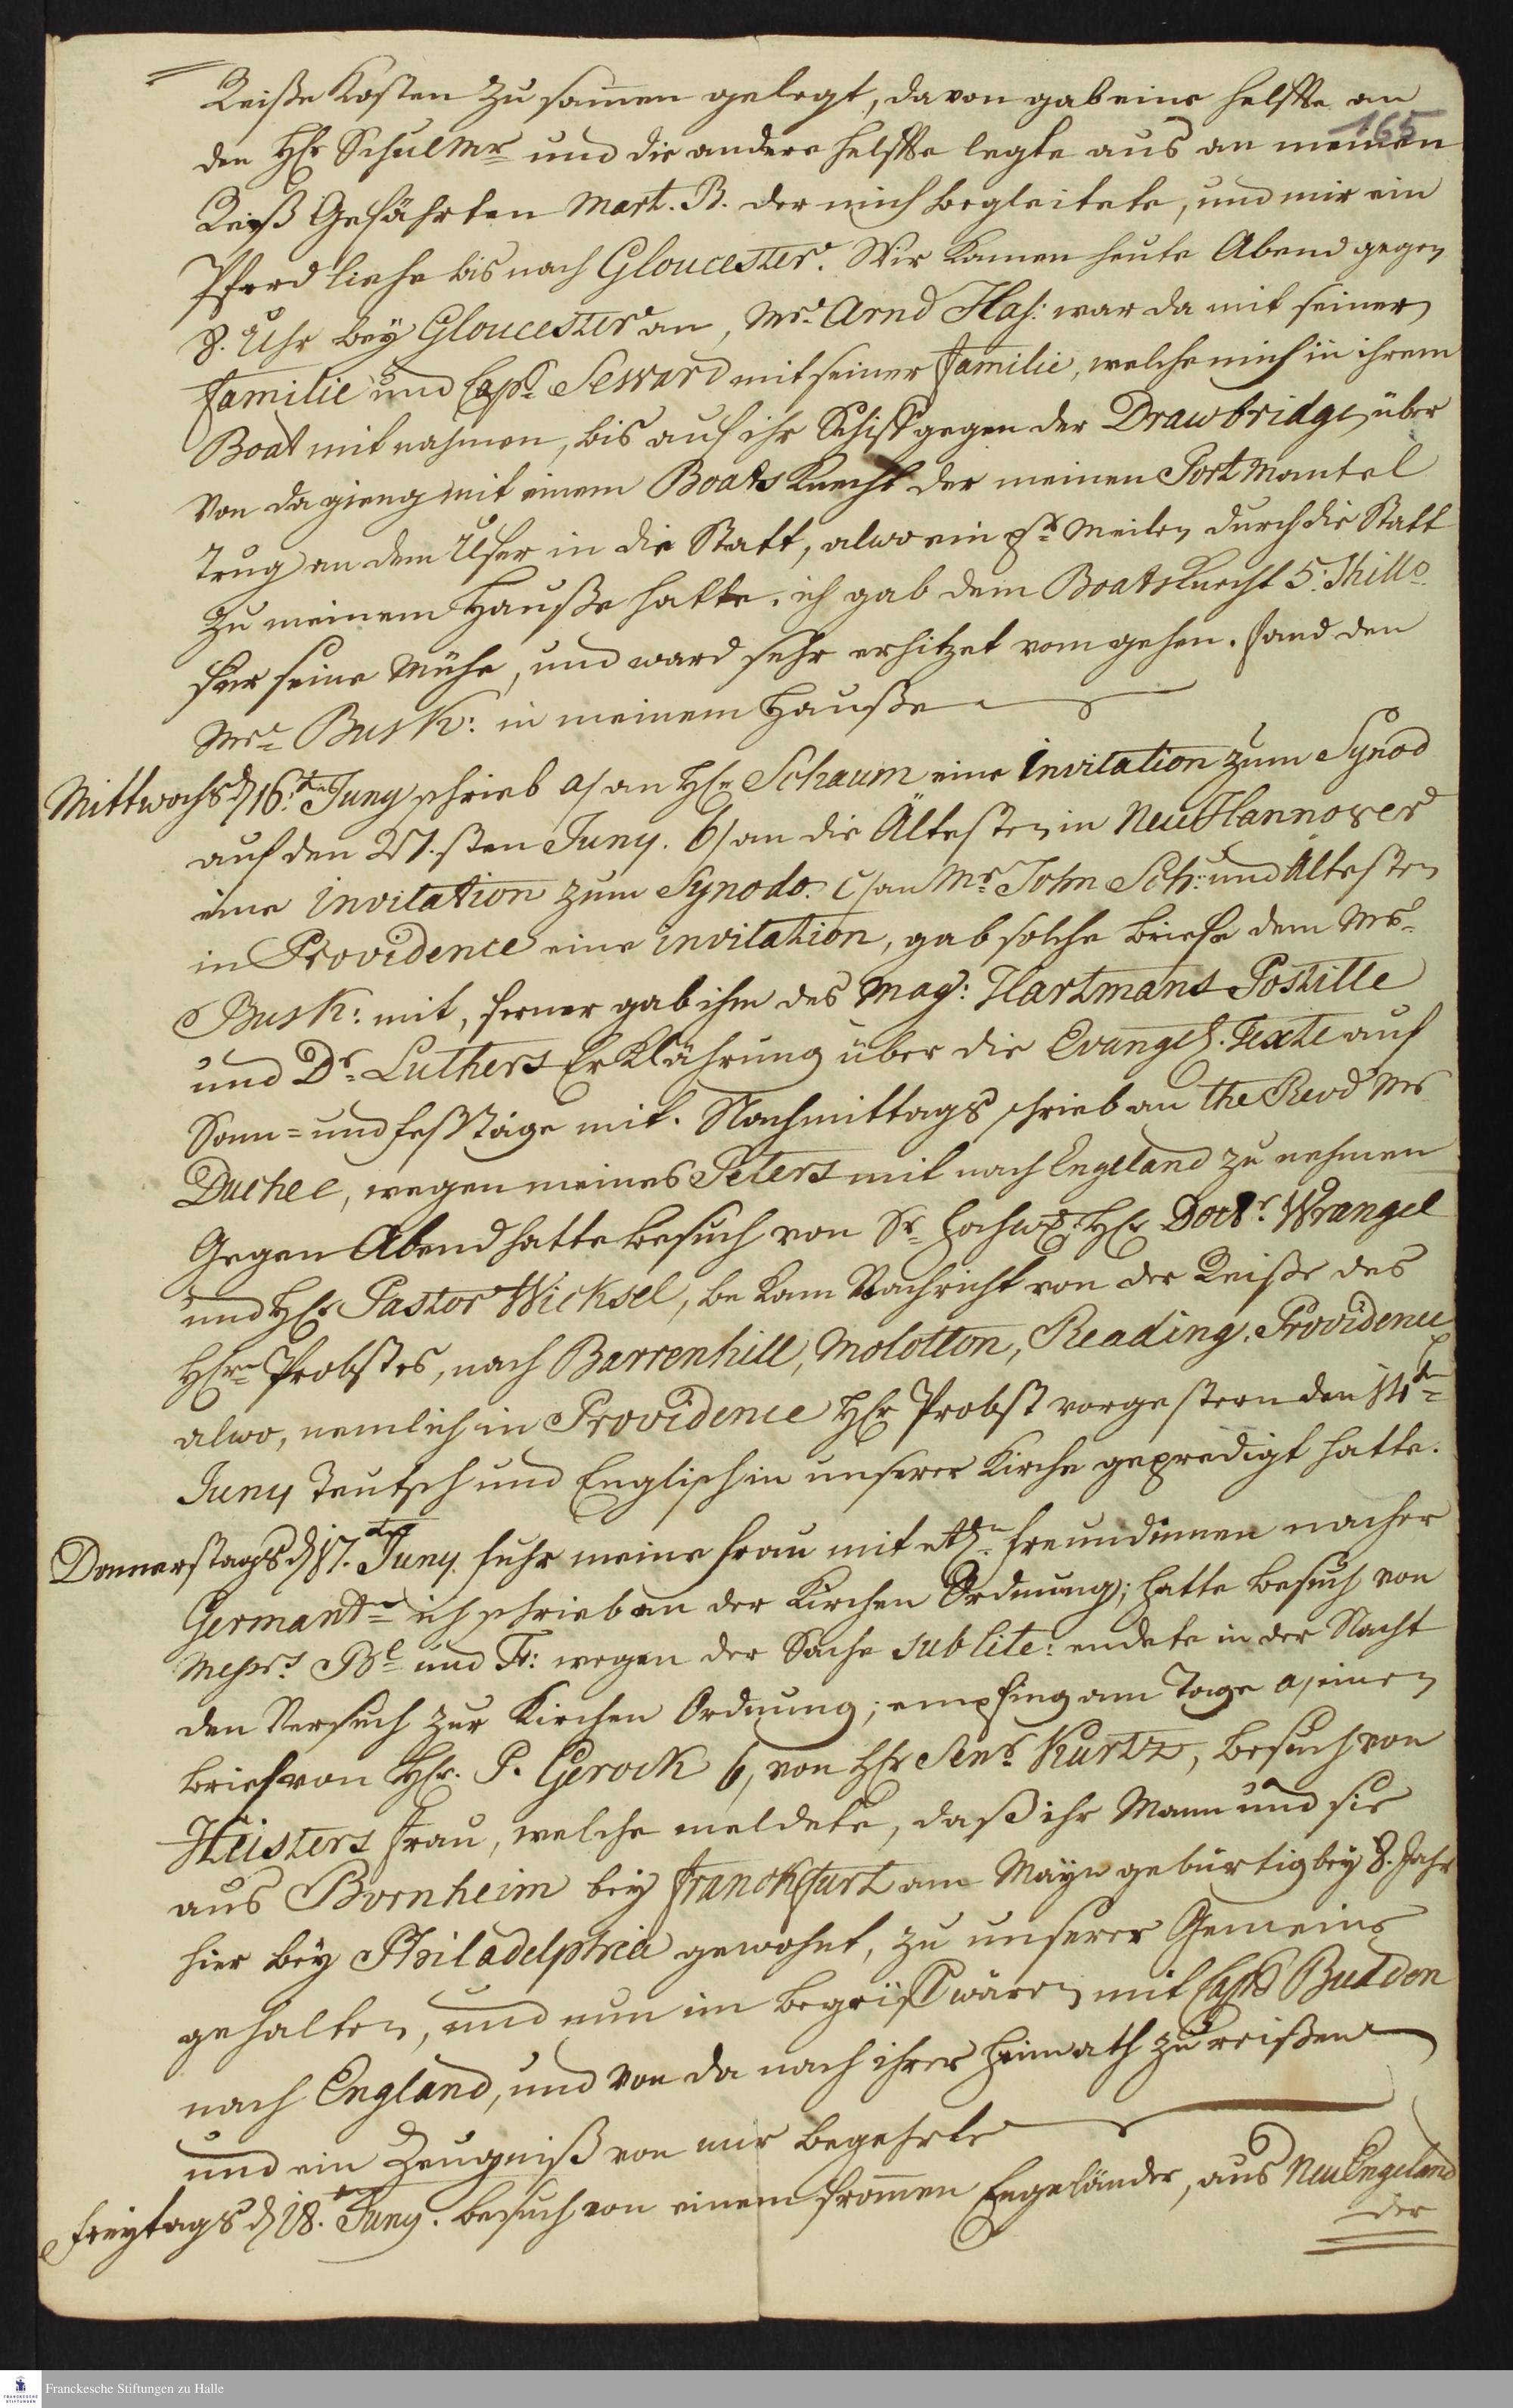 165
Reiße Kosten zu samen gelegt, davon gab eine helffte an
den Hℓ Schulmr und die andere helffte legte aus an meinen
Reiß Gefährten Mart. B. der mich begleitete, und mir ein
Pferd liehe bis nach Gloucester. Wir kamen heute Abend gegen
8. Uhr bey Gloucester an, Mr. Arnd Haß: war da mit seiner
Familie und Capt Seward mit seiner Familie, welche mich in ihrem
Boat mit nahmen, bis auf ihr Schiff gegen der Drawbridge über
Von da gieng mit einem Boats Knecht der meinen Portmantel
trug an dem Ufer in die Statt, alwo ein pr Meilen durch die Statt
zu meinem Hauße hatte. ich gab dem Boats Knecht 5. Shills
für seine Mühe, und ward sehr erhitzet vom gehen. fand den
Mr Busk: in meinem Hauße
Mittwochs d 16.t Juny schrieb a/ an Hℓ Schaum eine Invitation zum Synod
auf den 27.sten Juny. b/ an die Ältesten in Neu Hannover
eine invitation zum Synodo. c/ an Mr John Sch: und Ältesten
in Providence eine invitation, gab solche briefe dem Mr
Busk: mit, ferner gab ihm des Mag: Hartmans Postille
und Dr Luthers Erklährung über die Evangel. Texte auf
Sonn- und festtage mit. Nachmittags schrieb an the Revd Mr
Duchee, wegen meines Peters mit nach Engeland zu nehmen
Gegen Abend hatte besuch von Sr hochw: Hℓ Doctr. Wrangel
und Hℓ Pastor Wicksel, be kam Nachricht von der Reiße des
Hℓrn Probstes, nach Barrenhill, Molotton, Reading. Providence
alwo, nemlich in Providence Hℓ Probst vorgestern den 14t
Juny Teutsch und Englisch in unserer Kirche gepredigt hatte.
Donnerstags d 17. Juny fuhr meine frau mit etℓn freundinnen nacher
Germantn ich schrieb an der Kirchen Ordnung; hatte besuch von
Messrs Bℓ und Tr: wegen der Sache sub lite: endete in der Nacht
den Versuch zur Kirchen Ordnung; empfing am Tage a, einen
brief von Hℓ. P. Gerock b, von Hℓ Senr Kurtz, besuch von
Heisters frau, welche meldete, daß ihr Mann und sie
aus Bornheim bey Franckfurt am Mayn gebürtig bey 8. Jahr
hier bey Philadelphia gewohnt, zu unserer Gemeine
gehalten, und nun im begriff wären mit Capt Budden
nach England, und von da nach ihrer Heimath zu reißen
und ein Zeugniß von mir begehrte
freytags d 18. Juny. besuch von einem fromen Engeländer, aus Neu Engeland
der
Franckesche Stiftungen zu Halle
FRANCKESCHE STIFTUNGEN